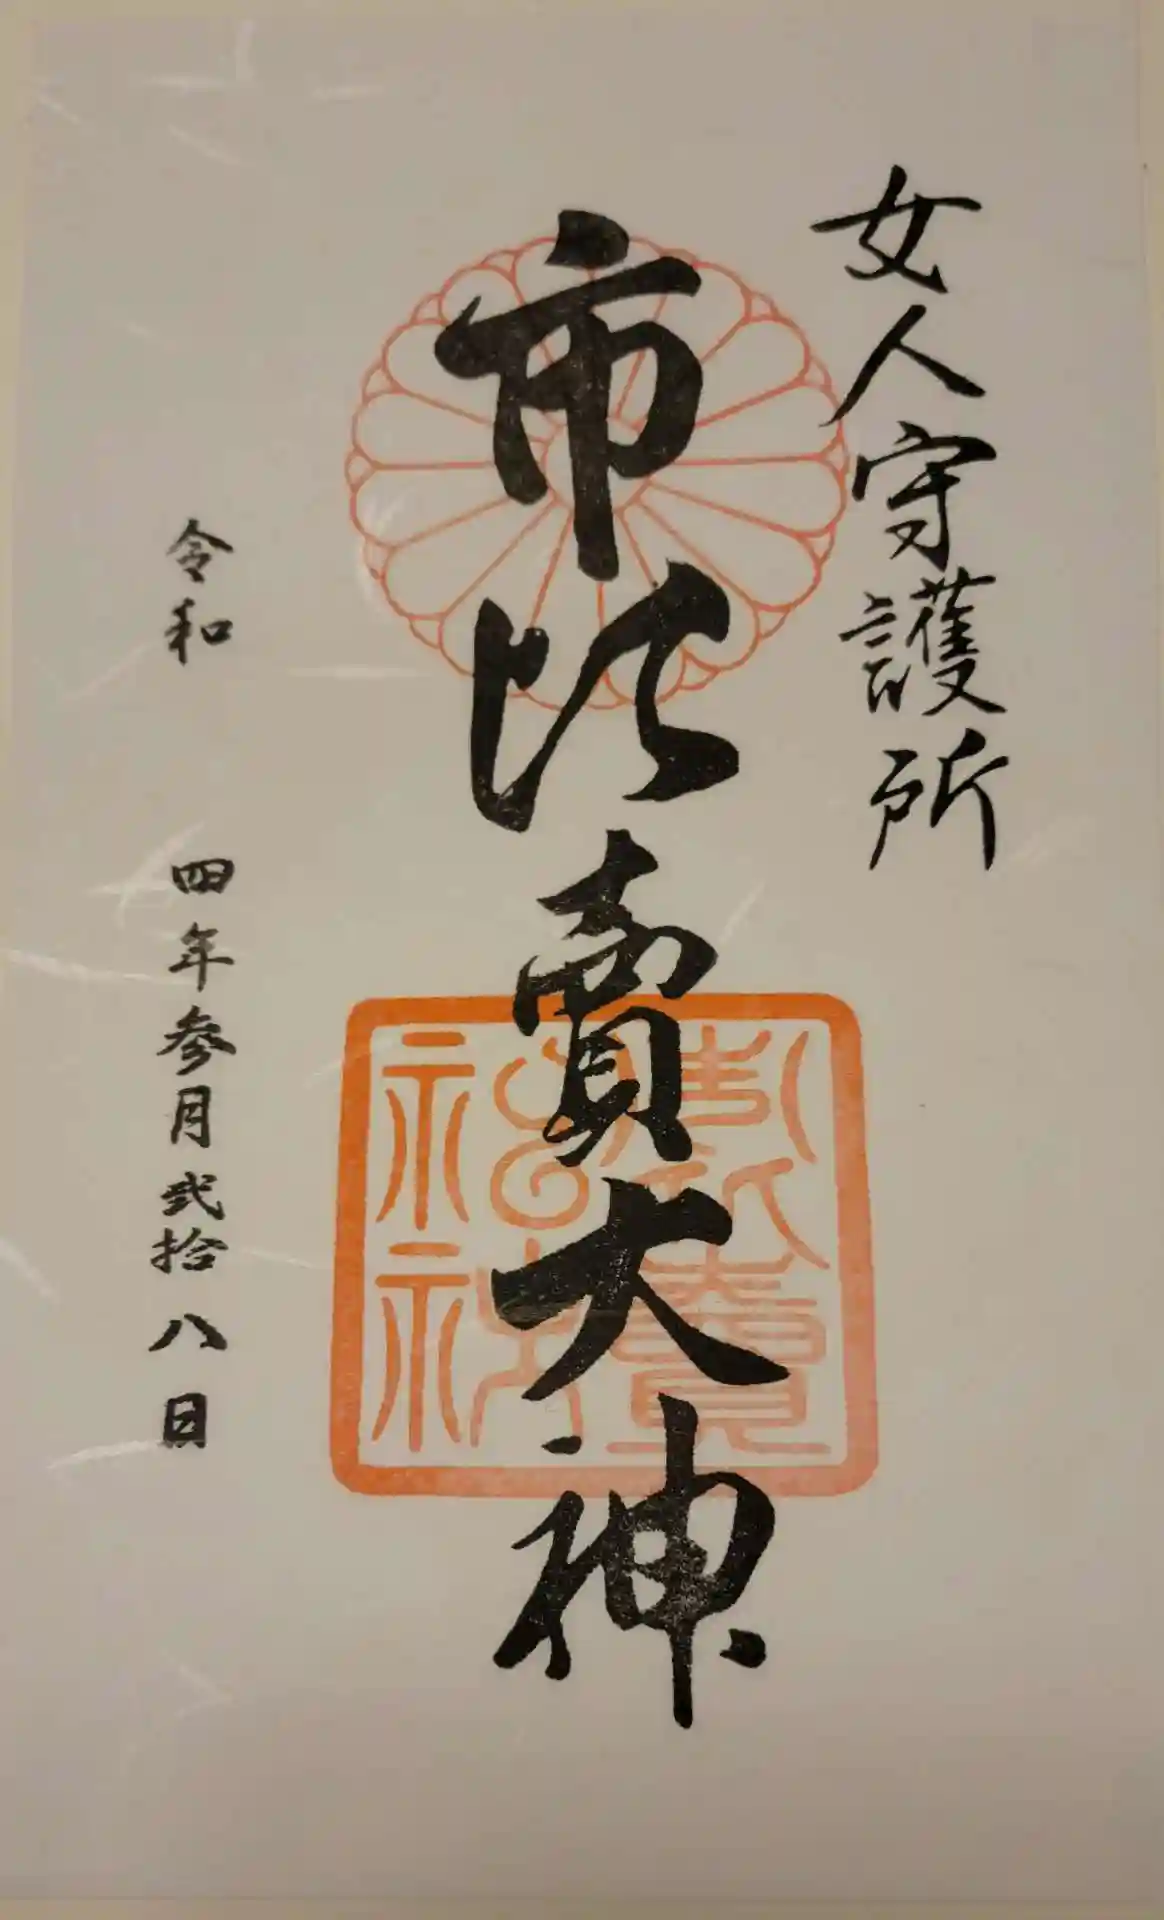 女人守護所
市比賣大神
令和 四年参月弐拾八日